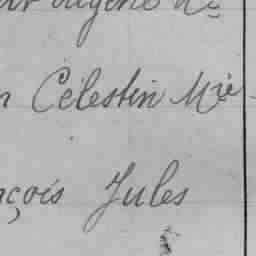 Eugène N°
Célestin Mie
nçois Jules